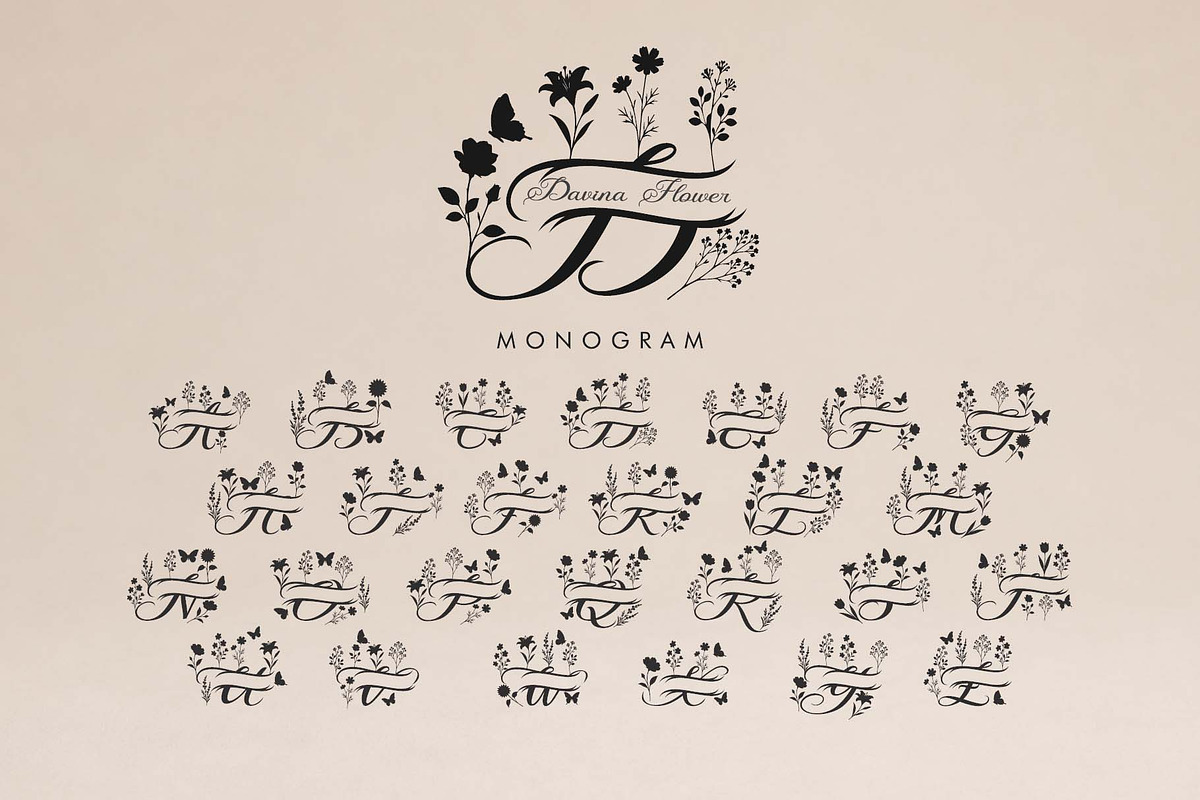 Davina Flower
MONOGRAM
A B C D E F G
H I J K L M
N O P Q R S T
U V W X Y Z